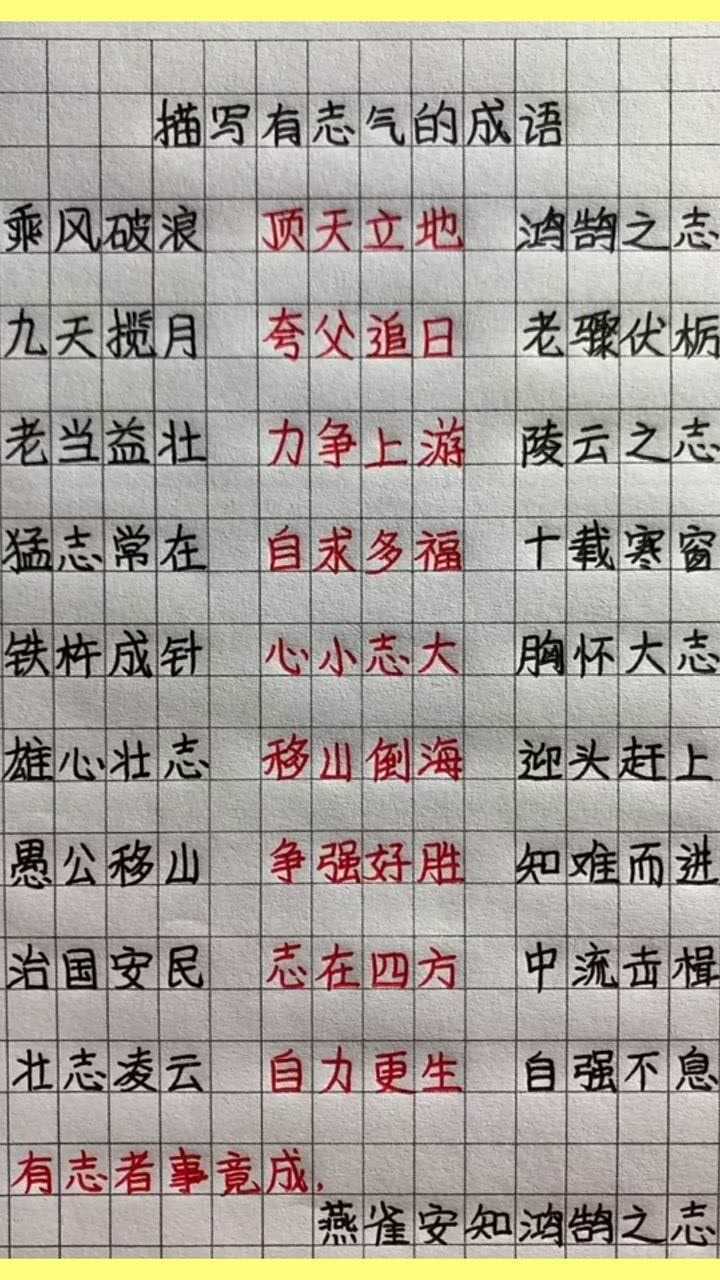 描写有志气的成语
乘风破浪 顶天立地 鸿鹄之志
九天揽月 夸父追日 老骥伏枥
老当益壮 力争上游 陵云之志
猛志常在 自求多福 十载寒窗
铁杵成针 心小志大 胸怀大志
雄心壮志 移山倒海 迎头赶上
愚公移山 争强好胜 知难而进
治国安民 志在四方 中流击楫
壮志凌云 自力更生 自强不息
有志者事竟成,
燕雀安知鸿鹄之志